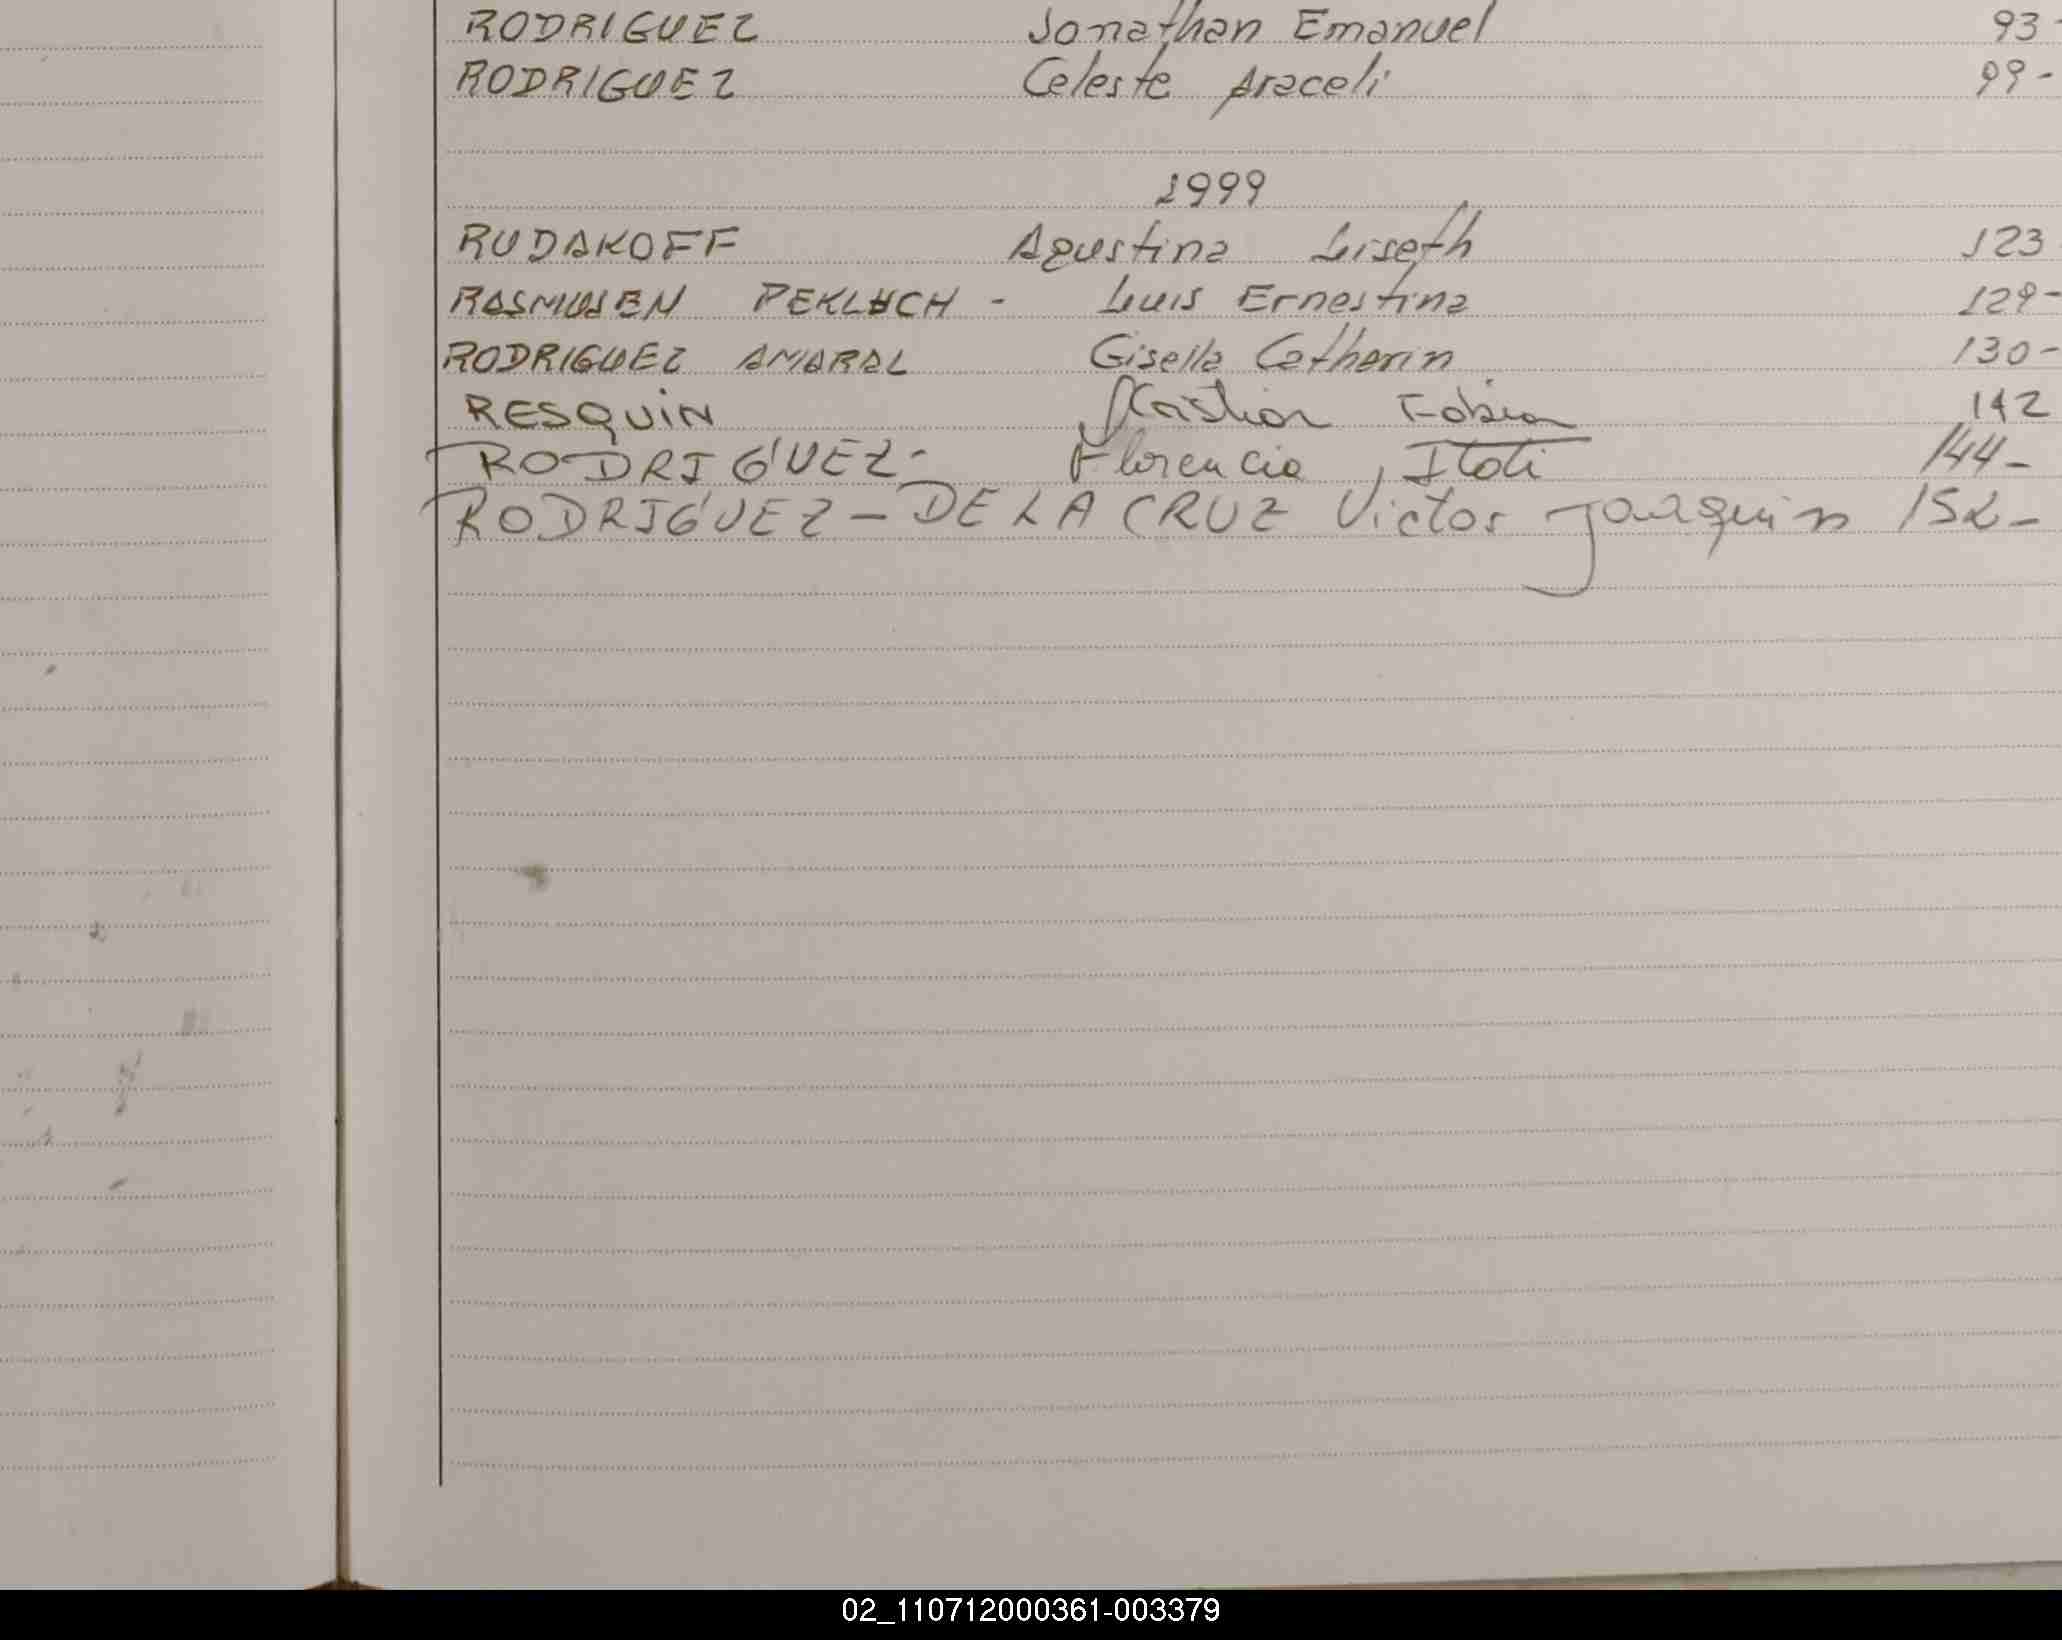 RODRIGUEZ Jonathan Emanuel 93-
RODRIGUEZ Celeste Araceli 99-
1999
RUDAKOFF Agustina Liseth 123
RASMUSEN PEKLUCH - Luis Ernestina 129-
RODRIGUEZ AMARAL Gisella Catherin 130-
RESQUIN Cristian Fabian 142
RODRIGUEZ- Florencia Itati 144-
RODRIGUEZ - DE LA CRUZ Victor Joaquin 152-
02_110712000361-003379